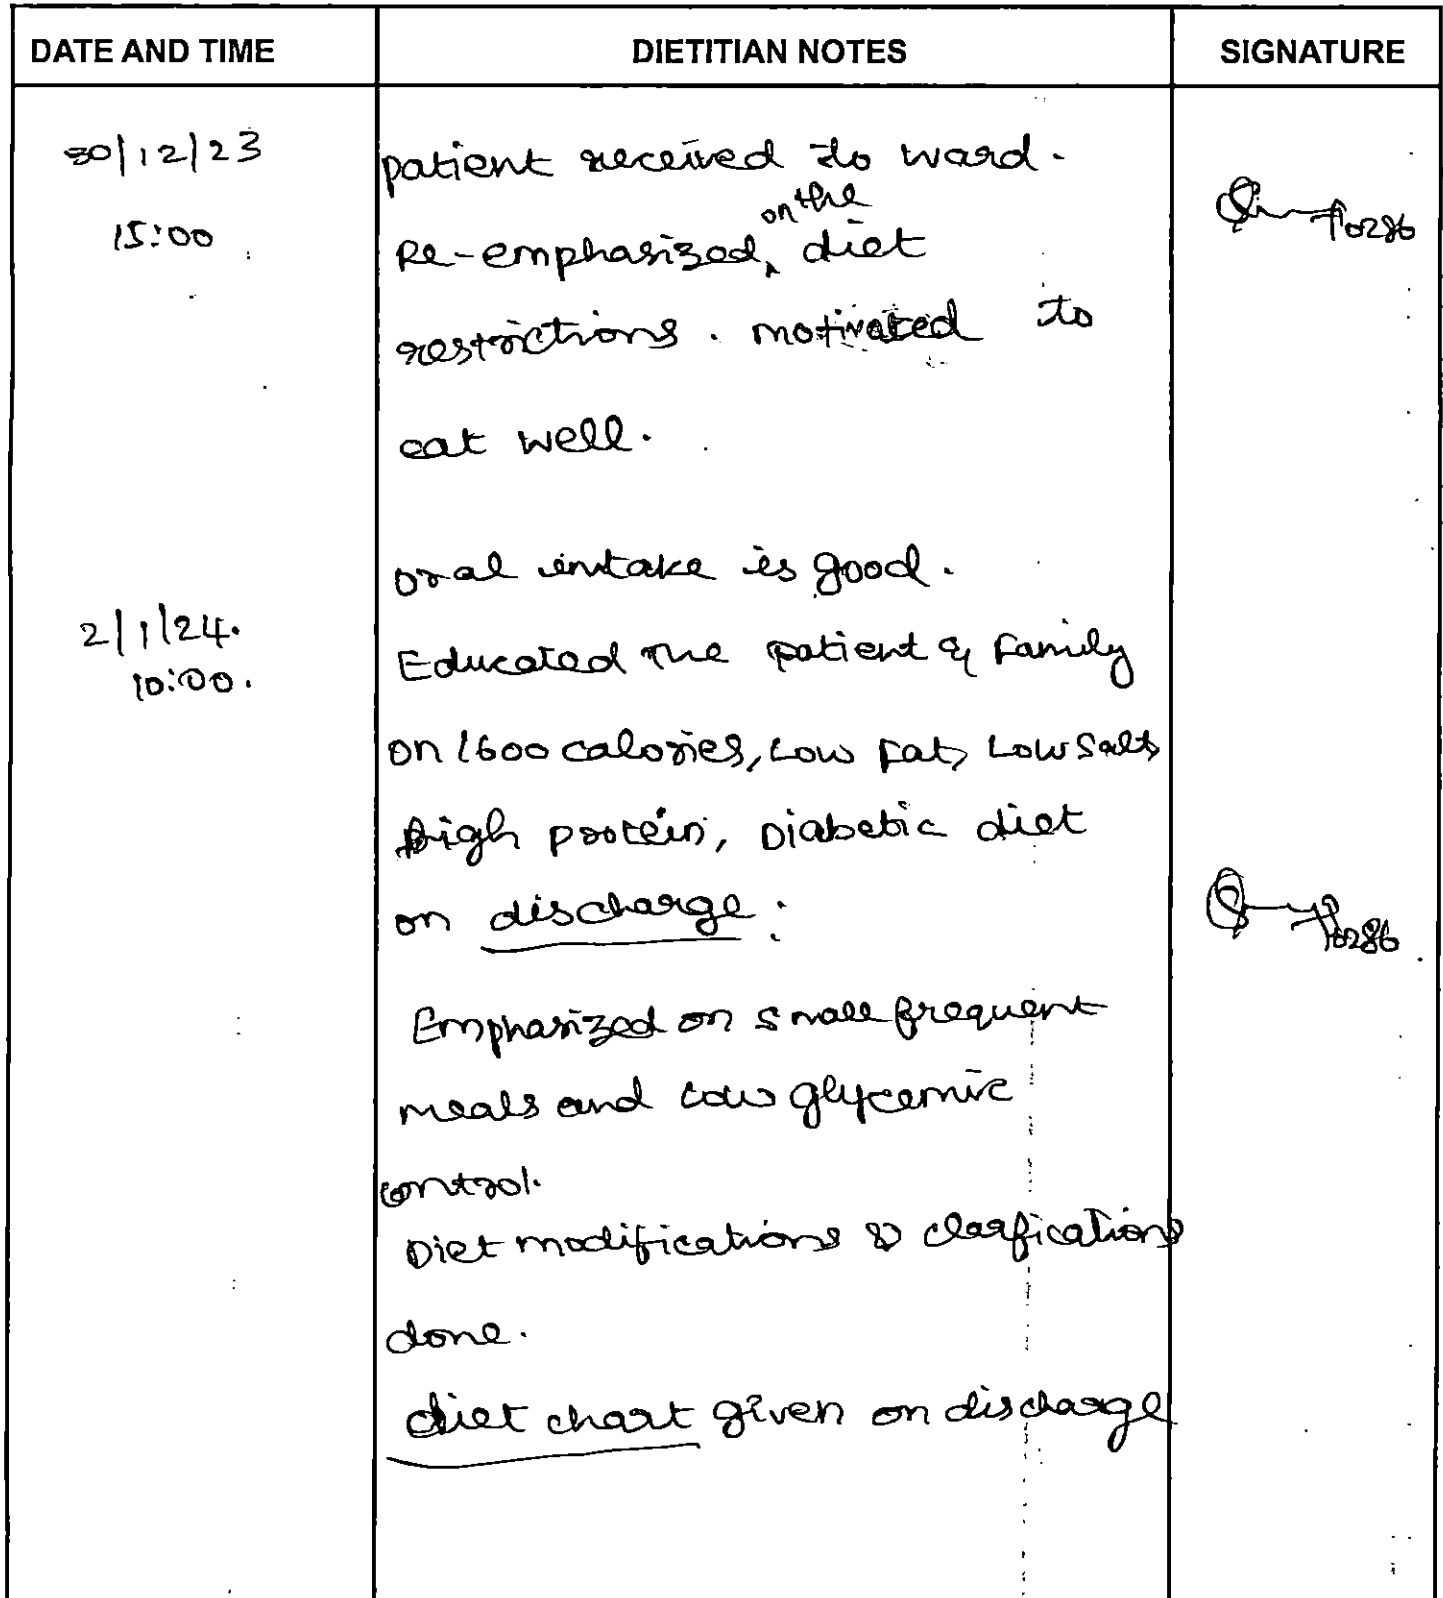 DATE AND TIME DIETITIAN NOTES SIGNATURE
30/12/23 patient received to ward.
15:00 Re-emphasized on the diet
restrictions. motivated to
eat well.
oral intake is good.
2/1/24. Educated the patient & family
10:00.
on 1600 calories, Low fat, Low Salt,
high protein, Diabetic diet
on discharge:
Emphasized on small frequent
meals and low glycemic
control.
Diet modifications & clarfications
done.
diet chart given on discharge
10286
10286